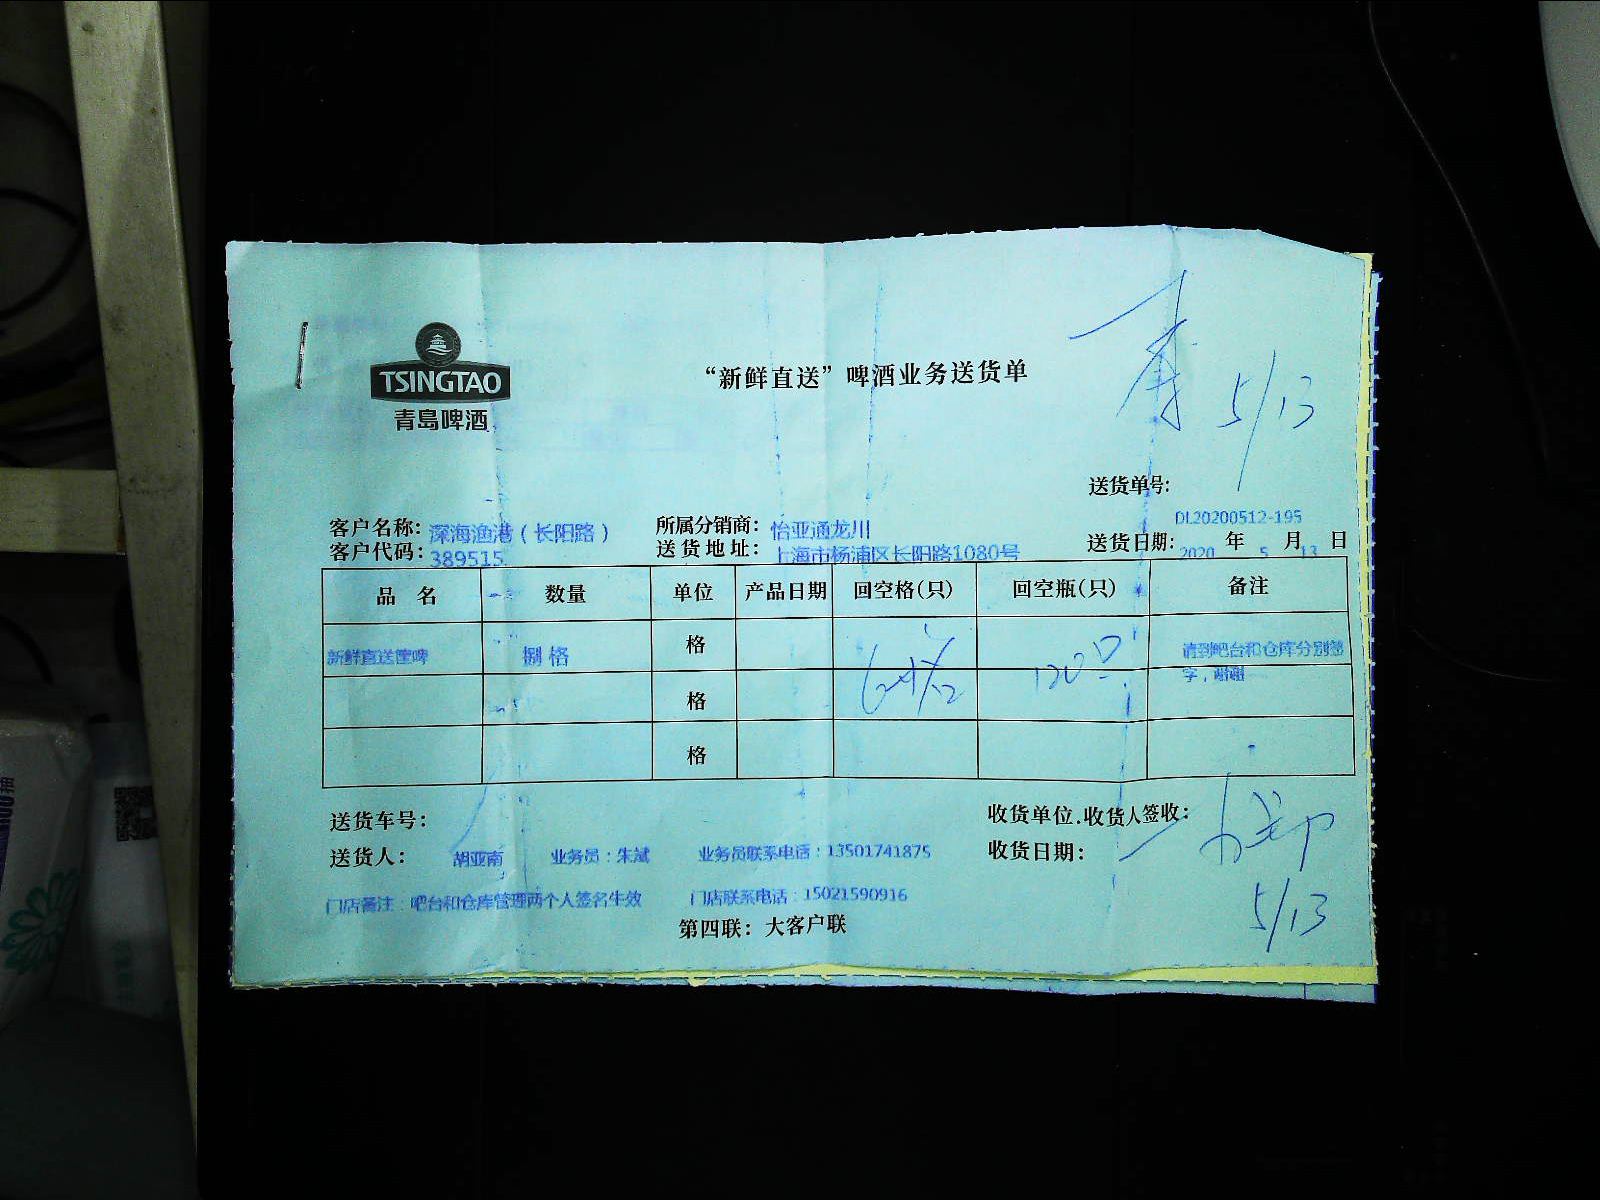 TSINGTAO
青岛啤酒
“新鲜直送”啤酒业务送货单
5/13
送货单号:
DL20200512-195
客户名称: 深海渔港（长阳路） 所属分销商: 怡亚通龙川
客户代码: 389515 送货地址: 上海市杨浦区长阳路1080号 送货日期: 2020 年 5 月 13 日
品 名 数量 单位 产品日期 回空格(只) 回空瓶(只) 备注
新鲜直送筐啤 捌格 格 120只 请到吧台和仓库分别签
字，谢谢
格
格
送货车号: 收货单位.收货人签收:
送货人: 胡亚南 业务员：朱斌 业务员联系电话：13501741875 收货日期:
门店备注：吧台和仓库管理两个人签名生效 门店联系电话：15021590916
5/13
第四联: 大客户联